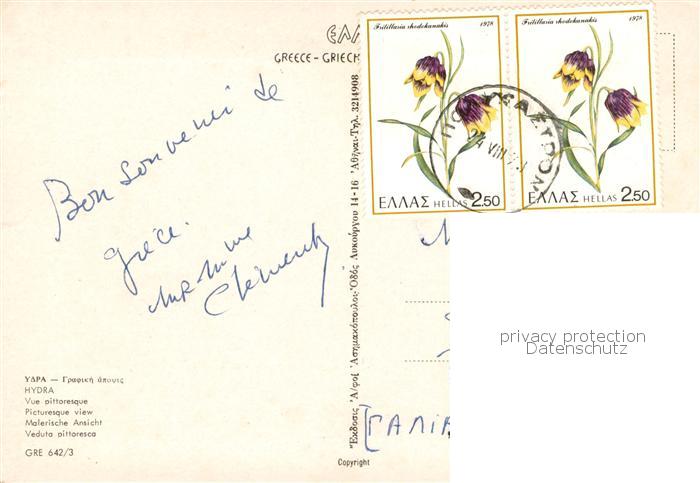 Bon souvenir de
Grèce.
Clément
ΥΔΡΑ — Γραφική άποψις
HYDRA
Vue pittoresque
Picturesque view
Malerische Ansicht
Veduta pittoresca
GRE 642/3
ΕΛΛ
GREECE - GRIECH
Ἔκδοσις Ἀ/φοί Ἀσημακόπουλοι· Ὁδός Λυκούργου 14-16 Ἀθῆναι-Τηλ. 3214908
Copyright
Fritillaria rhodokanakis 1978
ΕΛΛΑΣ HELLAS 2.50
Fritillaria rhodokanakis 1978
ΕΛΛΑΣ HELLAS 2.50
24 VIII
ΓΑΛΛΙΑ
privacy protection
Datenschutz